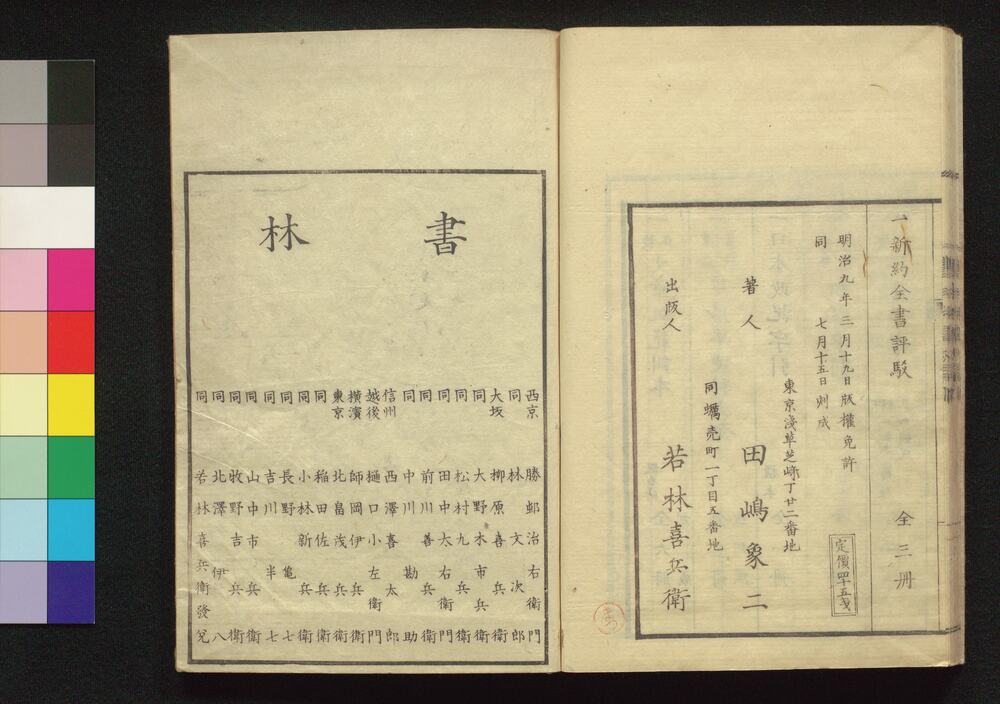 一新約全書評駁 全三册
明治九年三月十九日版權免許
同 七月十五日刿成
定價四十五戔
東京淺草芝崎丁廿二番地
著人 田嶋象二
同蠣売町一丁目五番地
出版人 若林喜兵衛
書林
西京 勝邨治右衛門
同 林文次郎
大坂 柳原喜兵衛
同 大野木市兵衛
同 松村九兵衛
同 田中太右衛門
同 前川善兵衛
同 中川勘助
信州 西澤喜太郎
越後 樋口小左衛門
橫濱 師岡伊兵衛
東京 北畠茂兵衛
同 稲田佐兵衛
同 小林新兵衛
同 長野亀七
同 吉川半七
同 山中市兵衛
同 牧野吉兵衛
同 北澤伊八
同 若林喜兵衛發兌